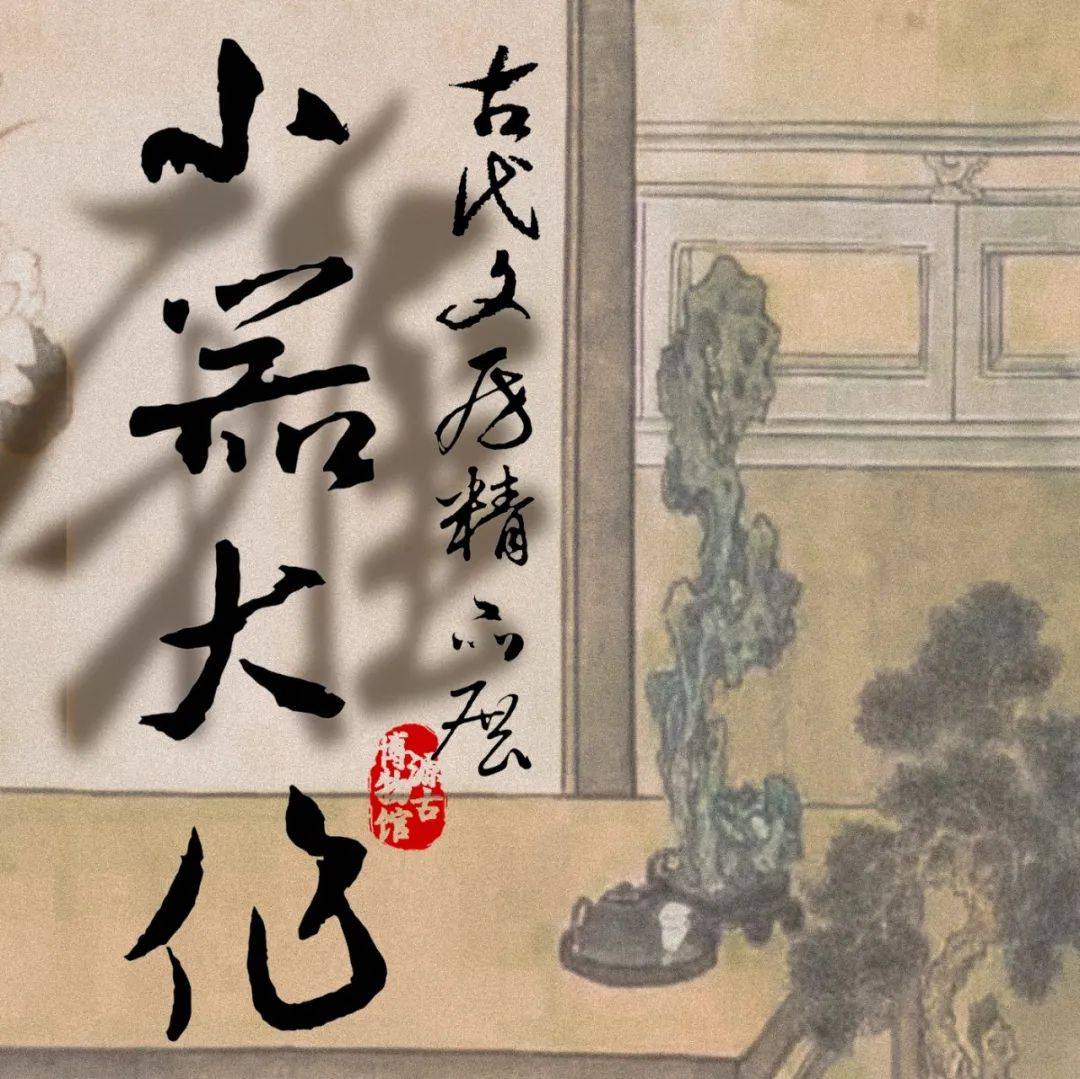 小器大作
古代文房精品展
源古
博物馆